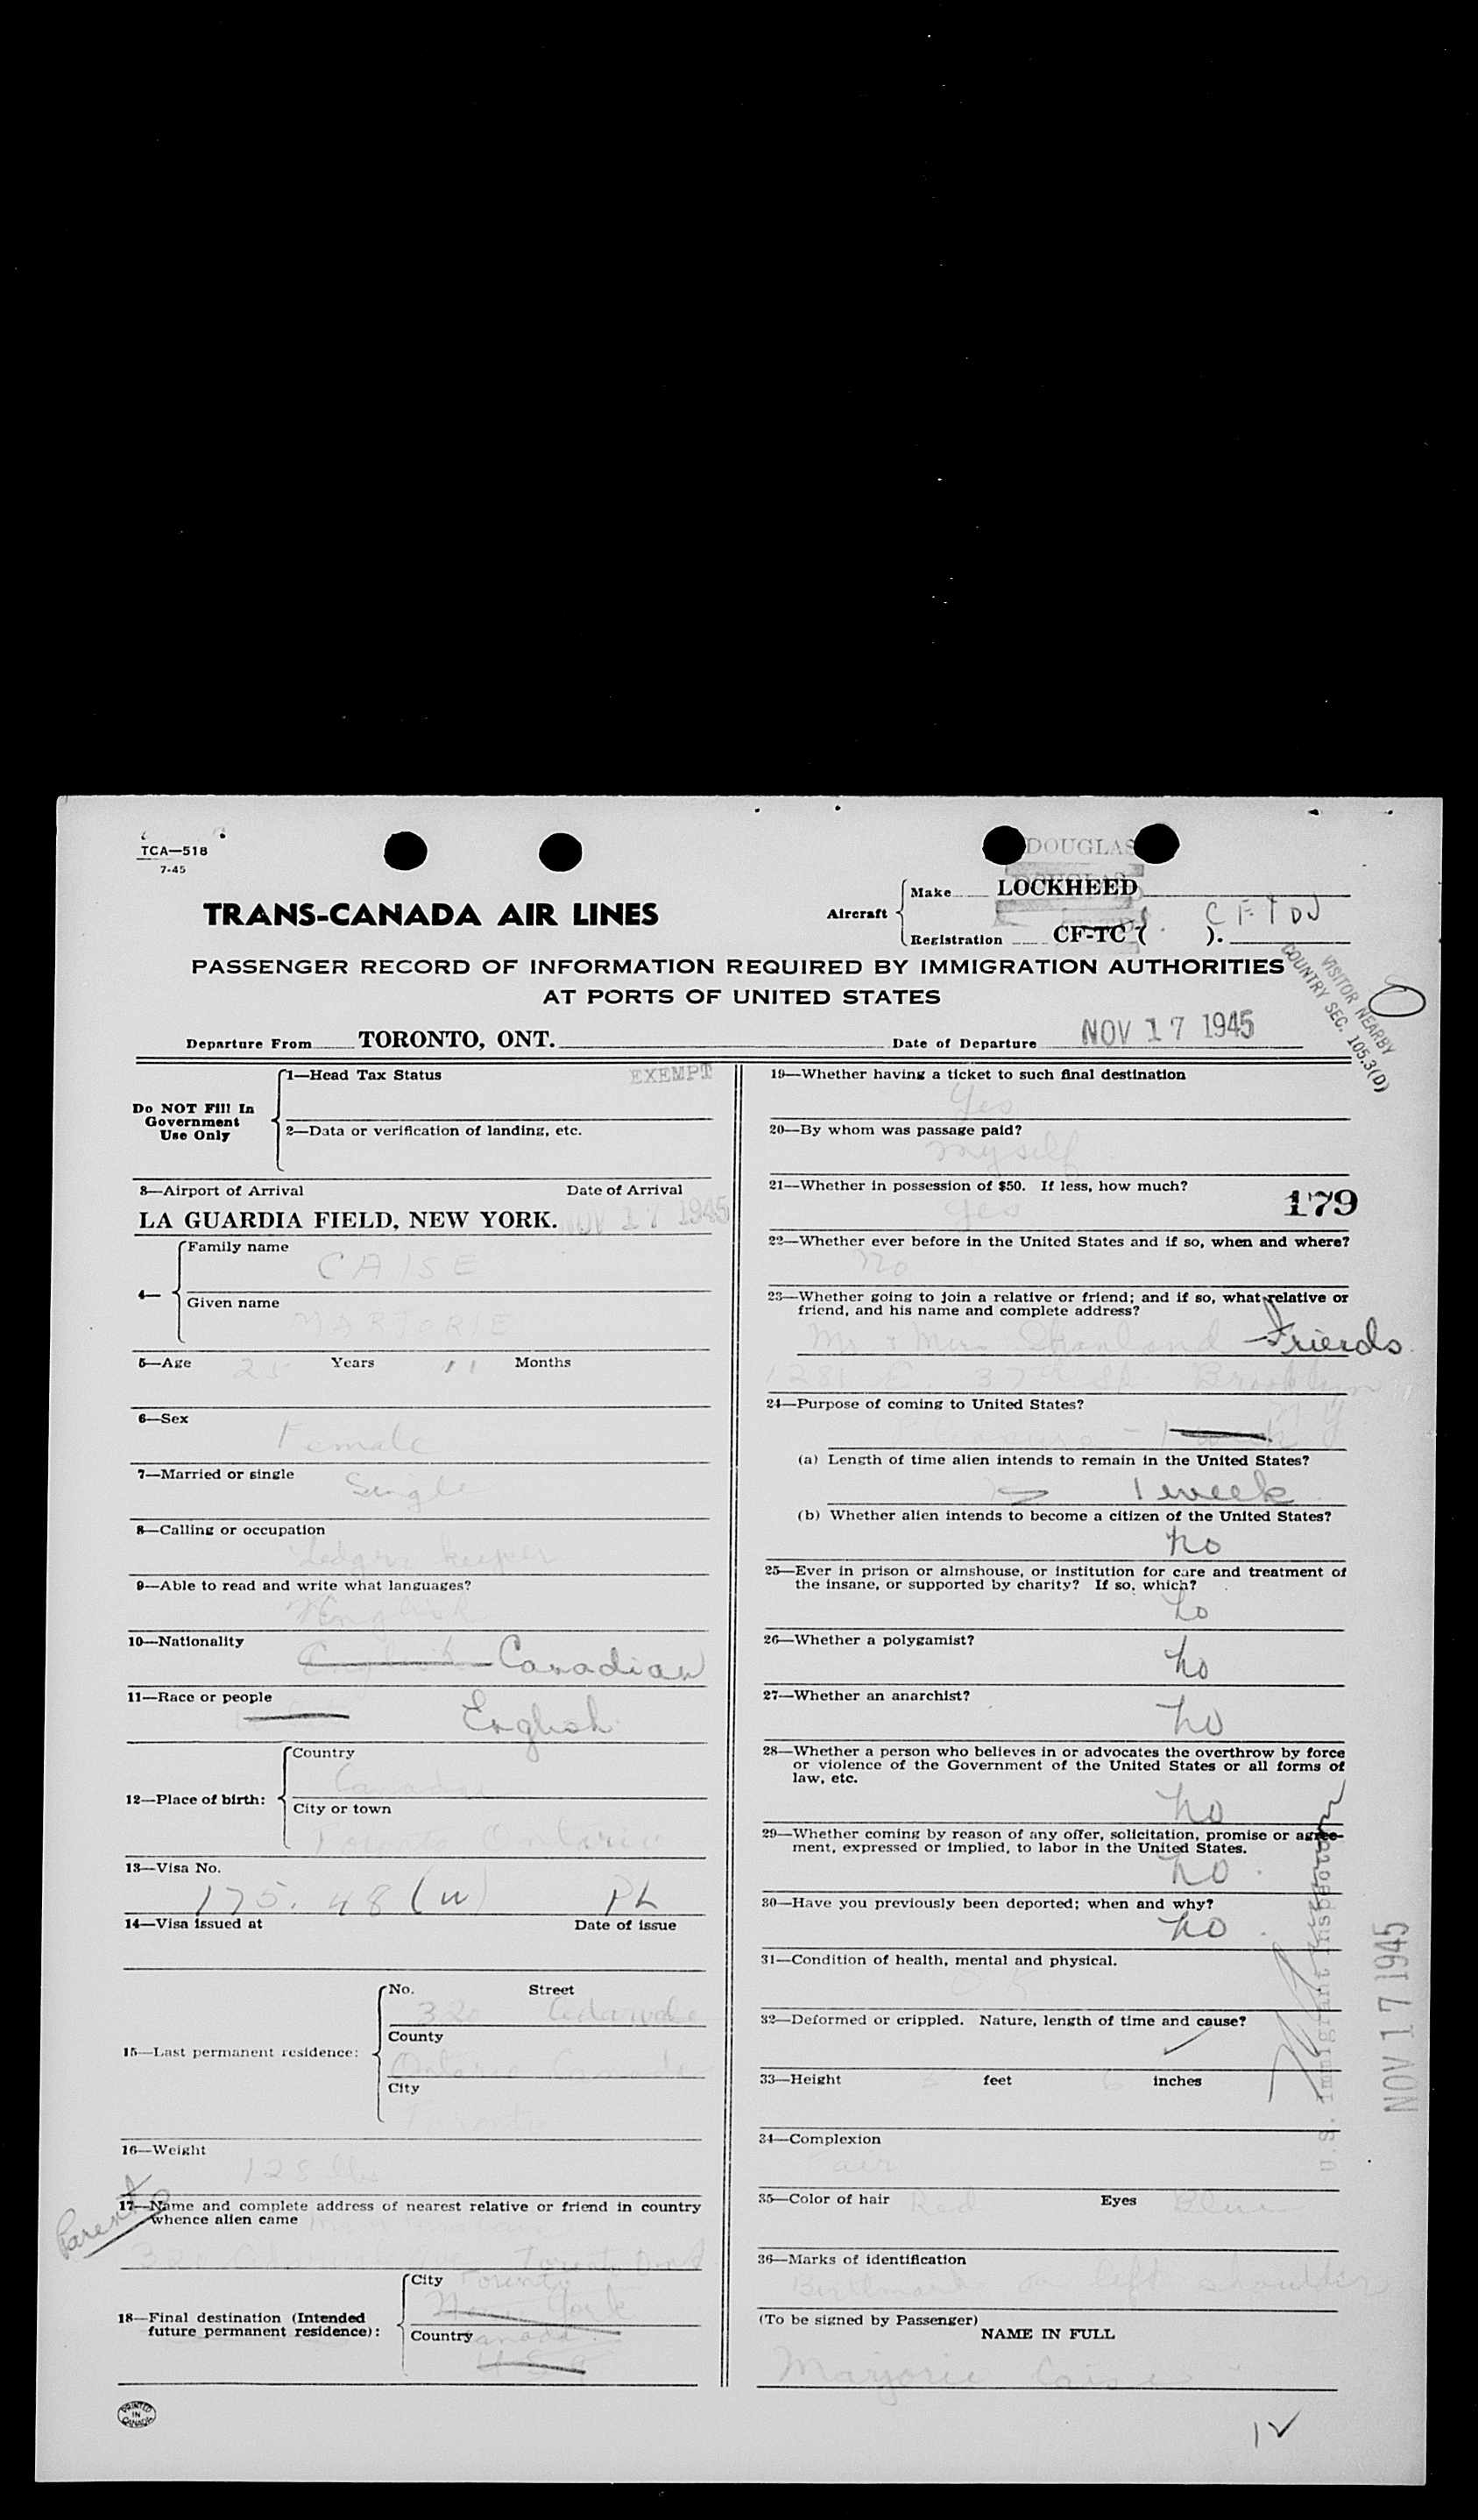 TCA—518
7-45
DOUGLAS
TRANS-CANADA AIR LINES
Aircraft
Make LOCKHEED
Registration CF-TC ( ). CF TDJ
PASSENGER RECORD OF INFORMATION REQUIRED BY IMMIGRATION AUTHORITIES
AT PORTS OF UNITED STATES
VISITOR NEARBY
COUNTRY SEC. 105.3(D)
Departure From TORONTO, ONT. Date of Departure NOV 17 1945
Do NOT Fill In
Government
Use Only
1—Head Tax Status EXEMPT
2—Data or verification of landing, etc.
3—Airport of Arrival Date of Arrival
LA GUARDIA FIELD, NEW YORK. NOV 17 1945
4—
Family name
CAISE
Given name
MARJORIE
5—Age 25 Years 11 Months
6—Sex
Female
7—Married or single
Single
8—Calling or occupation
Ledger keeper
9—Able to read and write what languages?
English
10—Nationality
English Canadian
11—Race or people
English
12—Place of birth:
Country
Canada
City or town
Toronto Ontario
13—Visa No.
175.48 (W) PL
14—Visa issued at Date of issue
15—Last permanent residence:
No. Street
Cedarvale
County
Ontario Canada
City
Toronto
16—Weight
125 lbs
Parents
17—Name and complete address of nearest relative or friend in country
whence alien came
Toronto Ont
18—Final destination (Intended
future permanent residence):
City Toronto
New York
Country Canada
U S A
PRINTED
IN
CANADA
19—Whether having a ticket to such final destination
Yes
20—By whom was passage paid?
myself
21—Whether in possession of $50. If less, how much?
yes
179
22—Whether ever before in the United States and if so, when and where?
No
23—Whether going to join a relative or friend; and if so, what relative or
friend, and his name and complete address?
Mr & Mrs Friends
1281 E. 37th St. Brooklyn
N Y
24—Purpose of coming to United States?
Pleasure - 1 week
(a) Length of time alien intends to remain in the United States?
1 week
(b) Whether alien intends to become a citizen of the United States?
no
25—Ever in prison or almshouse, or institution for care and treatment of
the insane, or supported by charity? If so, which?
no
26—Whether a polygamist?
no
27—Whether an anarchist?
no
28—Whether a person who believes in or advocates the overthrow by force
or violence of the Government of the United States or all forms of
law, etc.
no
29—Whether coming by reason of any offer, solicitation, promise or agree-
ment, expressed or implied, to labor in the United States.
no
30—Have you previously been deported; when and why?
no
31—Condition of health, mental and physical.
OK
32—Deformed or crippled. Nature, length of time and cause?
33—Height 5 feet 6 inches
34—Complexion
Fair
35—Color of hair Red Eyes Blue
36—Marks of identification
Birthmark on left shoulder
(To be signed by Passenger)
NAME IN FULL
Marjorie Caise
U.S. Immigrant Inspector
NOV 17 1945